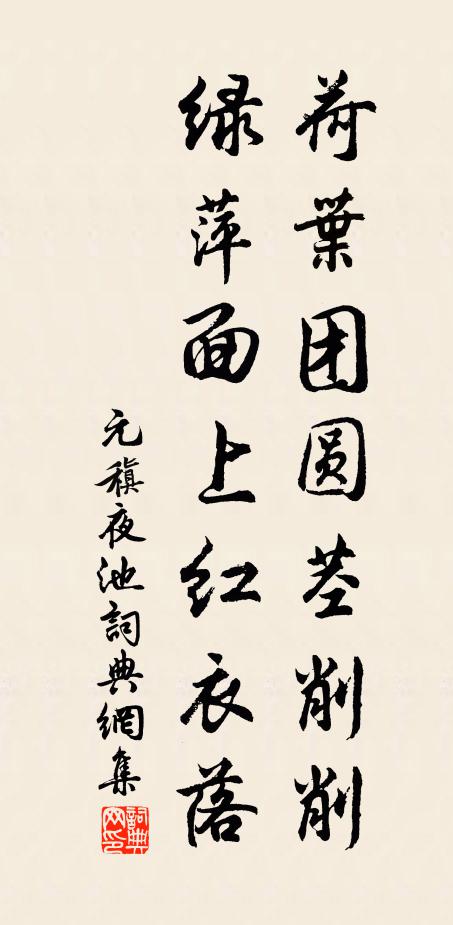 荷葉团圆茎削削
绿萍面上红衣落
元稹夜池詞典網集
詞典网印